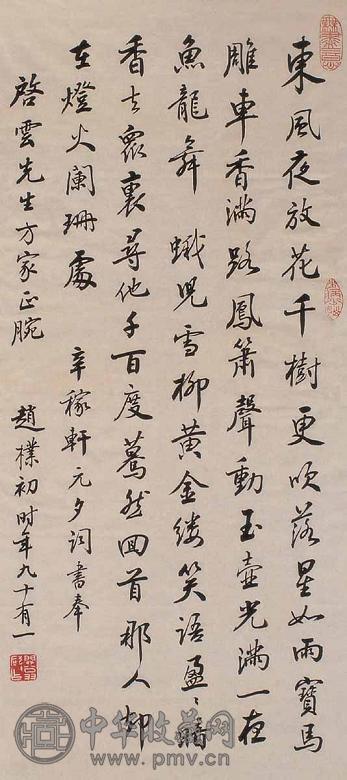 東風夜放花千樹更吹落星如雨寶馬
雕車香滿路鳳簫聲動玉壺光滿一夜
魚龍舞 蛾兒雪柳黃金縷笑語盈〻暗
香去眾裏尋他千百度驀然回首那人却
在燈火闌珊處 辛稼軒元夕詞書奉
啓雲先生方家正腕 趙樸初时年九十有一
中华收藏网
www.pmv.cn